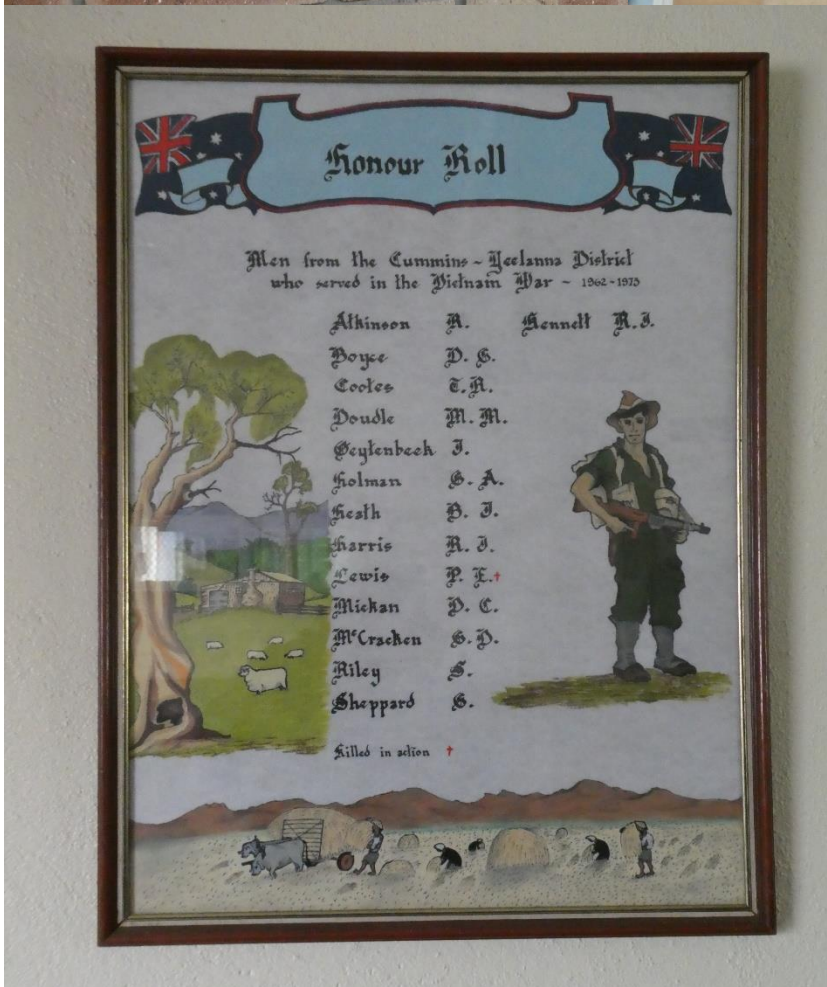 Honour Roll
Men from the Cummins ~ Yeelanna District
who served in the Vietnam War ~ 1962-1975
Atkinson R. Kennett R.J.
Boyce D. G.
Cootes T.R.
Doudle M. M.
Geytenbeek J.
Holman G. A.
Heath B. J.
Harris R. J.
Lewis P. E.†
Mickan D. C.
McCracken G.D.
Riley S.
Sheppard G.
Killed in action †